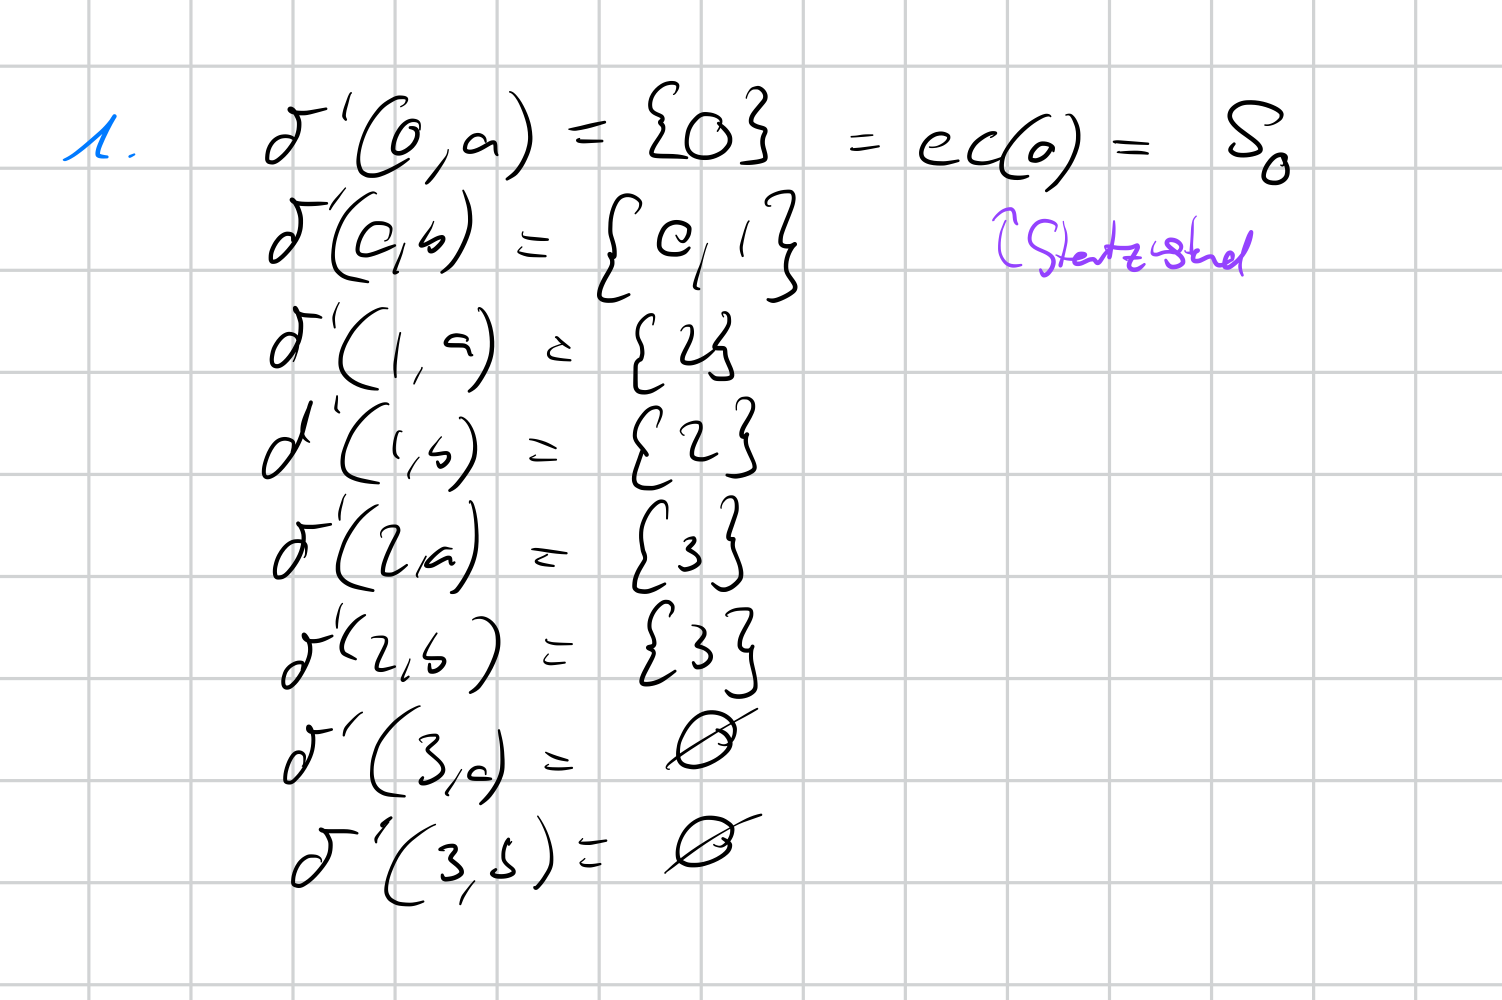 1. δ'(0,a) = {0} = ec(0) = S₀
δ'(0,b) = {0,1}
↑ Startzustand
δ'(1,a) = {2}
δ'(1,b) = {2}
δ'(2,a) = {3}
δ'(2,b) = {3}
δ'(3,a) = ∅
δ'(3,b) = ∅